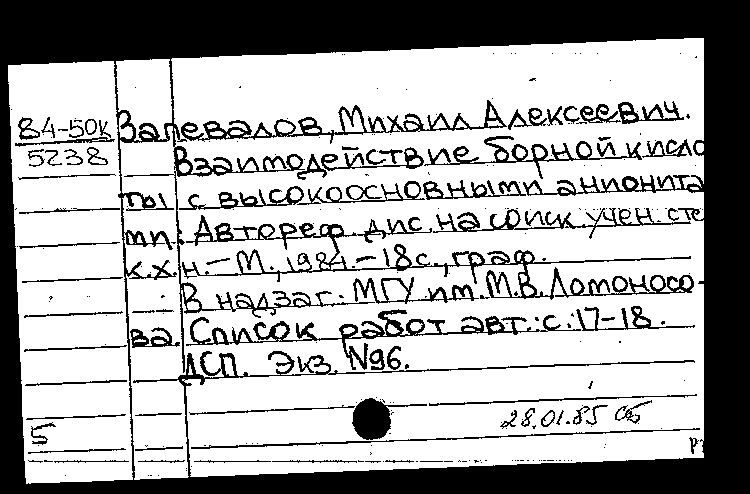 84-50к Запевалов, Михаил Алексеевич.
5238 Взаимодействие борной кисло
ты с высокоосновными анионита
ми: Автореф. дис. на соиск. учен. сте
к.х.н. - М., 1984. - 18 с., граф.
В надзаг.: МГУ им. М.В. Ломоносо-
ва. Список работ авт.: с. 17-18.
ДСП. Экз. N96.
28.01.85
5